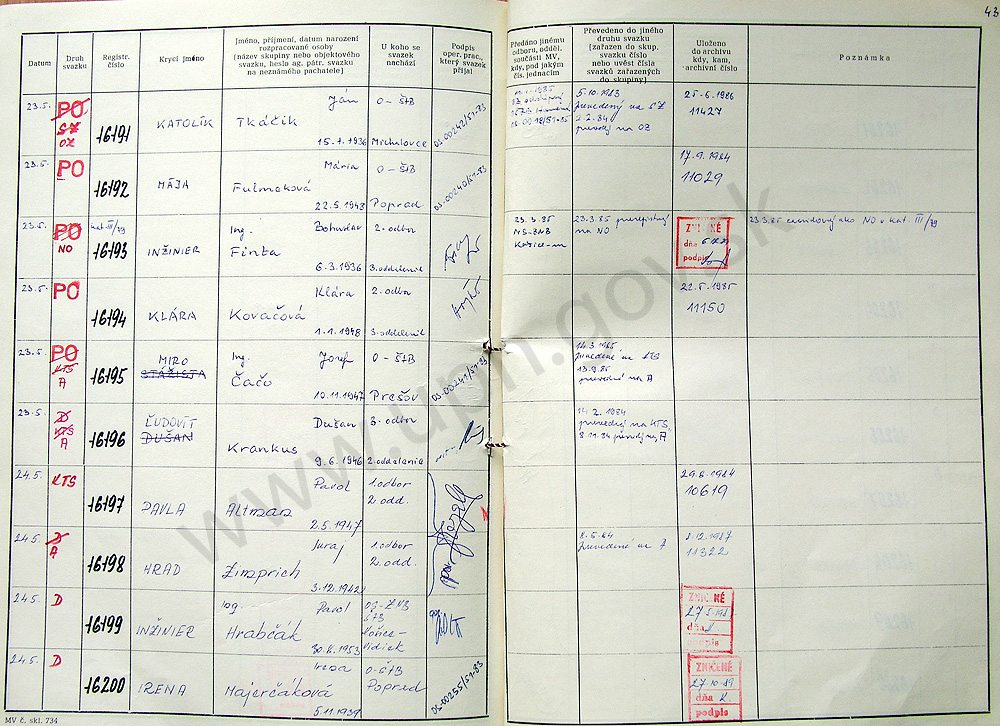 43
Datum
Druh
svazku
Registr.
číslo
Krycí jméno
Jméno, příjmení, datum narození
rozpracované osoby
(název skupiny nebo objektového
svazku, heslo ag. pátr. svazku
na neznámého pachatele)
U koho se
svazek
nachází
Podpis
oper. prac.,
který svazek
přijal
Předáno jinému
odboru, odděl.
součásti MV,
kdy, pod jakým
čís. jednacím
Převedeno do jiného
druhu svazku
(zařazen do skup.
svazku číslo
nebo uvést čísla
svazků zařazených
do skupiny)
Uloženo
do archivu
kdy, kam,
archivní číslo
Poznámka
23.5. PO 16191 KATOLÍK Ján Tkáčik 15.1.1936 O-ŠtB Michalovce OS-00242/51-83
SZ
OZ
5.10.1983
prevedený na SZ
2.2.84
prevedý na OZ
25-6-1986
11427
23.5. PO 16192 MÁJA Mária Fulmeková 22.5.1943 O-ŠtB Poprad OS-00240/51-83
17.9.1984
11029
23.5. PO kat III/79 16193 INŽINIER Ing. Bohuslav Finta 6.3.1936 2. odbor 3. oddelenie
NO
23.3.85
23.3.85
na NO
ZNIČENÉ
dňa
podpis
23.3.85 ako NO v kat. III/79
23.5. PO 16194 KLÁRA Klára Kovačová 1.1.1948 2. odbor 3. oddelenie
22.5.1985
11150
23.5. PO 16195 MIRO Ing. Jozef Čačo 10.11.1947 O-ŠtB Prešov OS-00241/51-83
KTS STÁŽISTA
A
14.3.1985
prevedené na KTS
13.9.85
prevedné na A
23.5. D 16196 ĽUDOVÍT Dušan Krankus 9.6.1946 3. odbor 2. oddelenie
KTS DUŠAN
A
14.2.1984
prevedený na KTS,
8.11.84 na A
24.5. KTS 16197 PAVLA Pavol Altman 2.5.1947 1. odbor 2. odd.
29.8.1984
10619
24.5. D 16198 HRAD Juraj Zimprich 3.12.1942 1. odbor 2. odd.
A
8.5.84
prevedené na A
8.12.1987
11322
24.5. D 16199 INŽINIER Ing. Pavol Hrabčák 30.11.1953 ŠtB Košice-vidiek
ZNIČENÉ
dňa
podpis
24.5. D 16200 IRENA Irena Majerčáková 5.11.1939 O-ŠtB Poprad OS-00255/51-83
ZNIČENÉ
27-10-89
dňa
podpis
MV č. skl. 734
www.upn.gov.sk